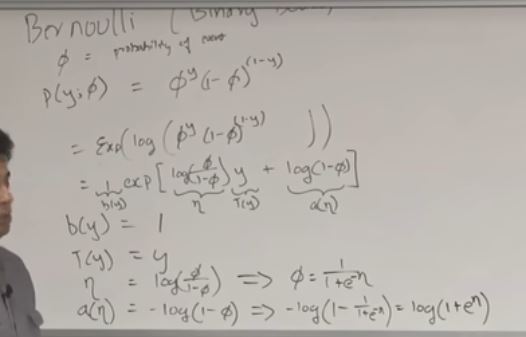 Bernoulli (Binary
φ = probability of event
P(y;φ) = φ^y (1-φ)^(1-y)
= Exp(log(φ^y (1-φ)^(1-y)))
= 1 exp[log(φ/(1-φ)) y + log(1-φ)]
b(y) η T(y) a(η)
b(y) = 1
T(y) = y
η = log(φ/(1-φ)) => φ = 1/(1+e^-η)
a(η) = -log(1-φ) => -log(1-1/(1+e^-η)) = log(1+e^η)